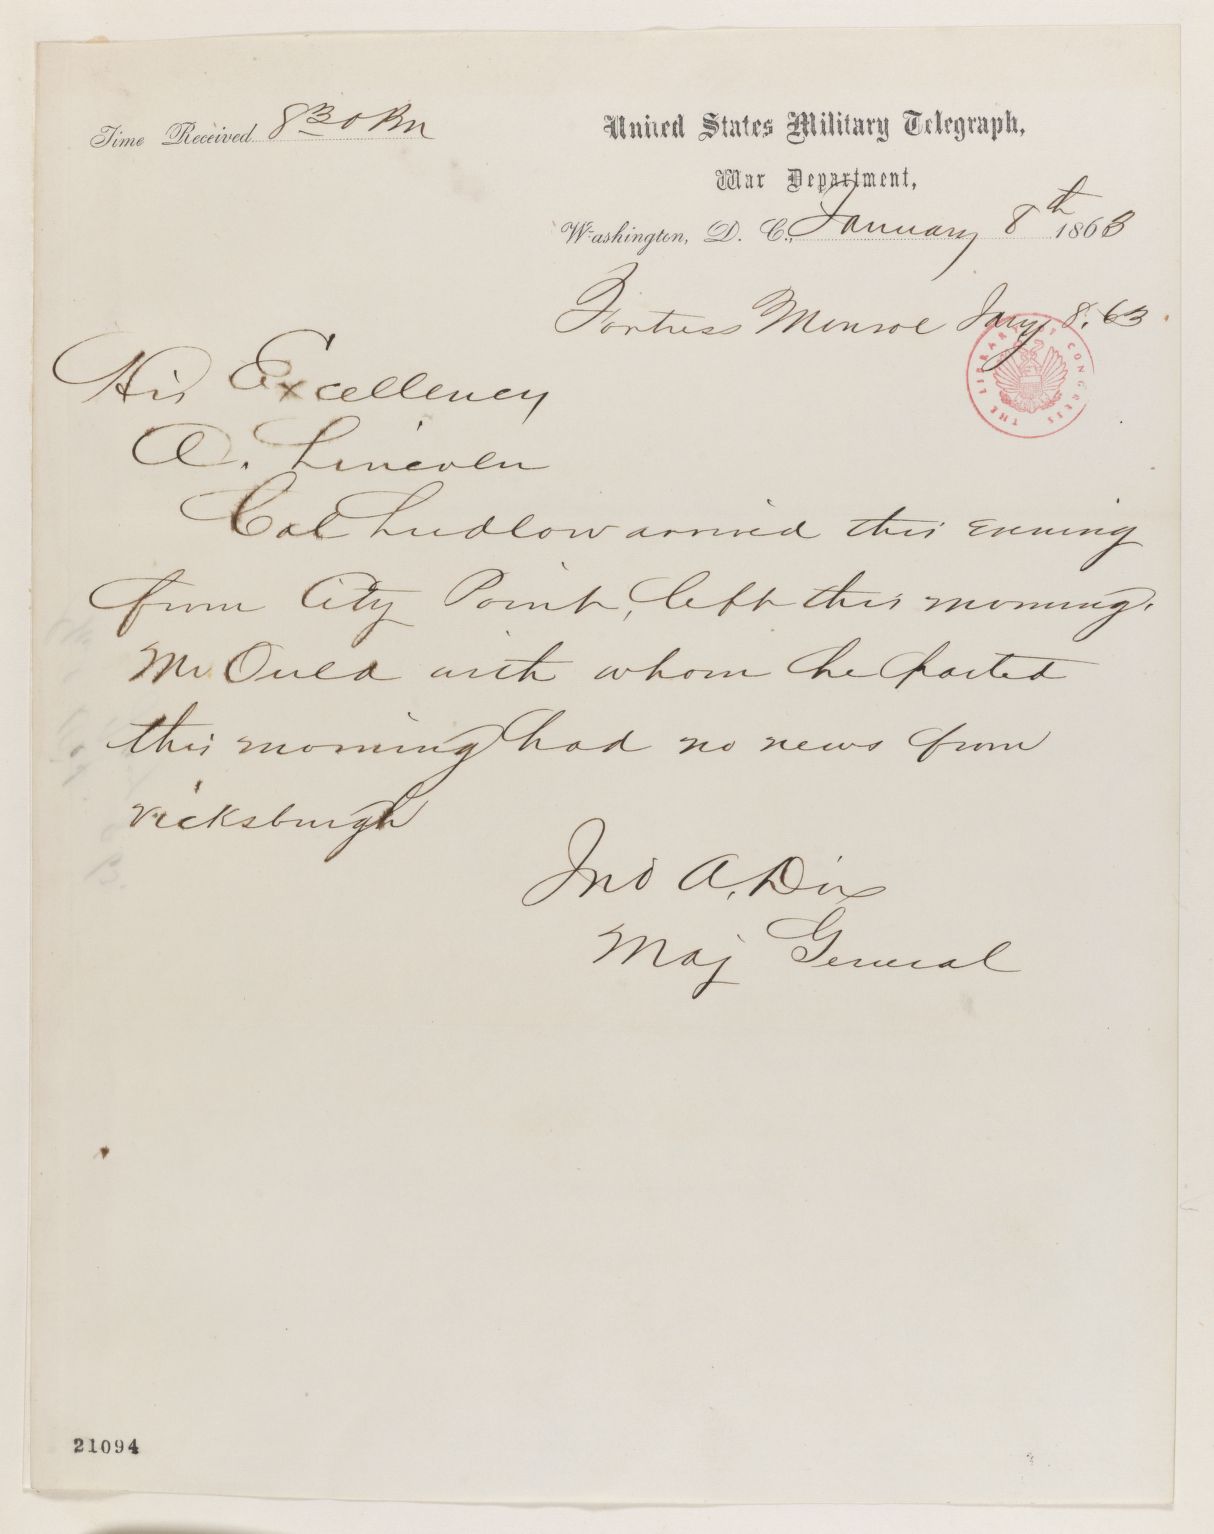 Time Received 8 30 Pm
United States Military Telegraph,
War Department,
Washington, D. C., January 8th 1863
Fortress Monroe Jany 8. 63
THE LIBRARY OF CONGRESS
His Excellency
A. Lincoln
Col Ludlow arrived this evening
from City Point, left this morning.
Mr Ould with whom he parted
this morning had no news from
Vicksburgh
Jno A. Dix
Maj General
21094